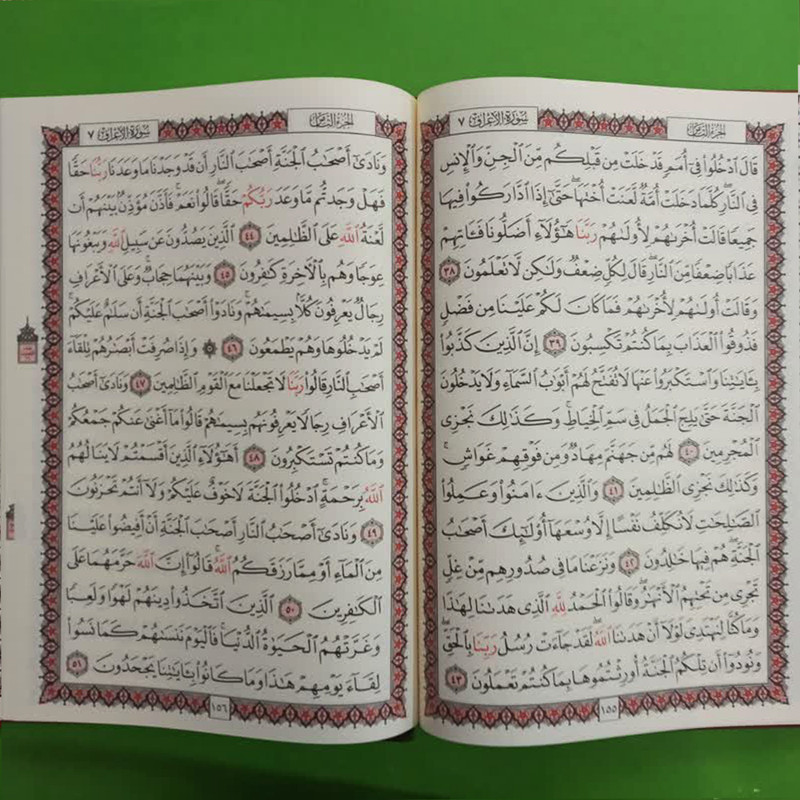 سورة الأعراف ٧
الجزء الثامن
قَالَ ٱدْخُلُوا۟ فِىٓ أُمَمٍ قَدْ خَلَتْ مِن قَبْلِكُم مِّنَ ٱلْجِنِّ وَٱلْإِنسِ
فِى ٱلنَّارِ ۖ كُلَّمَا دَخَلَتْ أُمَّةٌ لَّعَنَتْ أُخْتَهَا ۖ حَتَّىٰٓ إِذَا ٱدَّارَكُوا۟ فِيهَا
جَمِيعًا قَالَتْ أُخْرَىٰهُمْ لِأُولَىٰهُمْ رَبَّنَا هَـٰٓؤُلَآءِ أَضَلُّونَا فَـَٔاتِهِمْ
عَذَابًا ضِعْفًا مِّنَ ٱلنَّارِ ۖ قَالَ لِكُلٍّ ضِعْفٌ وَلَـٰكِن لَّا تَعْلَمُونَ ٣٨
وَقَالَتْ أُولَىٰهُمْ لِأُخْرَىٰهُمْ فَمَا كَانَ لَكُمْ عَلَيْنَا مِن فَضْلٍ
فَذُوقُوا۟ ٱلْعَذَابَ بِمَا كُنتُمْ تَكْسِبُونَ ٣٩ إِنَّ ٱلَّذِينَ كَذَّبُوا۟
بِـَٔايَـٰتِنَا وَٱسْتَكْبَرُوا۟ عَنْهَا لَا تُفَتَّحُ لَهُمْ أَبْوَٰبُ ٱلسَّمَآءِ وَلَا يَدْخُلُونَ
ٱلْجَنَّةَ حَتَّىٰ يَلِجَ ٱلْجَمَلُ فِى سَمِّ ٱلْخِيَاطِ ۚ وَكَذَٰلِكَ نَجْزِى
ٱلْمُجْرِمِينَ ٤٠ لَهُم مِّن جَهَنَّمَ مِهَادٌ وَمِن فَوْقِهِمْ غَوَاشٍ ۚ
وَكَذَٰلِكَ نَجْزِى ٱلظَّـٰلِمِينَ ٤١ وَٱلَّذِينَ ءَامَنُوا۟ وَعَمِلُوا۟
ٱلصَّـٰلِحَـٰتِ لَا نُكَلِّفُ نَفْسًا إِلَّا وُسْعَهَآ أُو۟لَـٰٓئِكَ أَصْحَـٰبُ
ٱلْجَنَّةِ ۖ هُمْ فِيهَا خَـٰلِدُونَ ٤٢ وَنَزَعْنَا مَا فِى صُدُورِهِم مِّنْ غِلٍّ
تَجْرِى مِن تَحْتِهِمُ ٱلْأَنْهَـٰرُ ۖ وَقَالُوا۟ ٱلْحَمْدُ لِلَّهِ ٱلَّذِى هَدَىٰنَا لِهَـٰذَا
وَمَا كُنَّا لِنَهْتَدِىَ لَوْلَآ أَنْ هَدَىٰنَا ٱللَّهُ ۖ لَقَدْ جَآءَتْ رُسُلُ رَبِّنَا بِٱلْحَقِّ ۖ
وَنُودُوٓا۟ أَن تِلْكُمُ ٱلْجَنَّةُ أُورِثْتُمُوهَا بِمَا كُنتُمْ تَعْمَلُونَ ٤٣
١٥٥
سورة الأعراف ٧
الجزء الثامن
وَنَادَىٰٓ أَصْحَـٰبُ ٱلْجَنَّةِ أَصْحَـٰبَ ٱلنَّارِ أَن قَدْ وَجَدْنَا مَا وَعَدَنَا رَبُّنَا حَقًّا
فَهَلْ وَجَدتُّم مَّا وَعَدَ رَبُّكُمْ حَقًّا ۖ قَالُوا۟ نَعَمْ ۚ فَأَذَّنَ مُؤَذِّنٌۢ بَيْنَهُمْ أَن
لَّعْنَةُ ٱللَّهِ عَلَى ٱلظَّـٰلِمِينَ ٤٤ ٱلَّذِينَ يَصُدُّونَ عَن سَبِيلِ ٱللَّهِ وَيَبْغُونَهَا
عِوَجًا وَهُم بِٱلْـَٔاخِرَةِ كَـٰفِرُونَ ٤٥ وَبَيْنَهُمَا حِجَابٌ ۚ وَعَلَى ٱلْأَعْرَافِ
رِجَالٌ يَعْرِفُونَ كُلًّۢا بِسِيمَىٰهُمْ ۚ وَنَادَوْا۟ أَصْحَـٰبَ ٱلْجَنَّةِ أَن سَلَـٰمٌ عَلَيْكُمْ ۚ
لَمْ يَدْخُلُوهَا وَهُمْ يَطْمَعُونَ ٤٦ ۞ وَإِذَا صُرِفَتْ أَبْصَـٰرُهُمْ تِلْقَآءَ
أَصْحَـٰبِ ٱلنَّارِ قَالُوا۟ رَبَّنَا لَا تَجْعَلْنَا مَعَ ٱلْقَوْمِ ٱلظَّـٰلِمِينَ ٤٧ وَنَادَىٰٓ أَصْحَـٰبُ
ٱلْأَعْرَافِ رِجَالًا يَعْرِفُونَهُم بِسِيمَىٰهُمْ قَالُوا۟ مَآ أَغْنَىٰ عَنكُمْ جَمْعُكُمْ
وَمَا كُنتُمْ تَسْتَكْبِرُونَ ٤٨ أَهَـٰٓؤُلَآءِ ٱلَّذِينَ أَقْسَمْتُمْ لَا يَنَالُهُمُ
ٱللَّهُ بِرَحْمَةٍ ۚ ٱدْخُلُوا۟ ٱلْجَنَّةَ لَا خَوْفٌ عَلَيْكُمْ وَلَآ أَنتُمْ تَحْزَنُونَ
٤٩ وَنَادَىٰٓ أَصْحَـٰبُ ٱلنَّارِ أَصْحَـٰبَ ٱلْجَنَّةِ أَنْ أَفِيضُوا۟ عَلَيْنَا
مِنَ ٱلْمَآءِ أَوْ مِمَّا رَزَقَكُمُ ٱللَّهُ ۚ قَالُوٓا۟ إِنَّ ٱللَّهَ حَرَّمَهُمَا عَلَى
ٱلْكَـٰفِرِينَ ٥٠ ٱلَّذِينَ ٱتَّخَذُوا۟ دِينَهُمْ لَهْوًا وَلَعِبًا
وَغَرَّتْهُمُ ٱلْحَيَوٰةُ ٱلدُّنْيَا ۚ فَٱلْيَوْمَ نَنسَىٰهُمْ كَمَا نَسُوا۟
لِقَآءَ يَوْمِهِمْ هَـٰذَا وَمَا كَانُوا۟ بِـَٔايَـٰتِنَا يَجْحَدُونَ ٥١
١٥٦